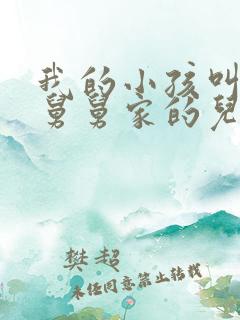 我的小孩叫
舅舅家的兒
樊超
未经同意禁止转载